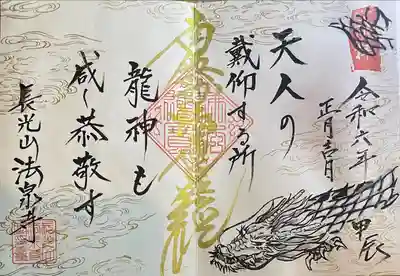 令和六年
正月吉日
甲辰
天人の
戴仰する所
龍神も
咸く恭敬す
長光山 法泉寺